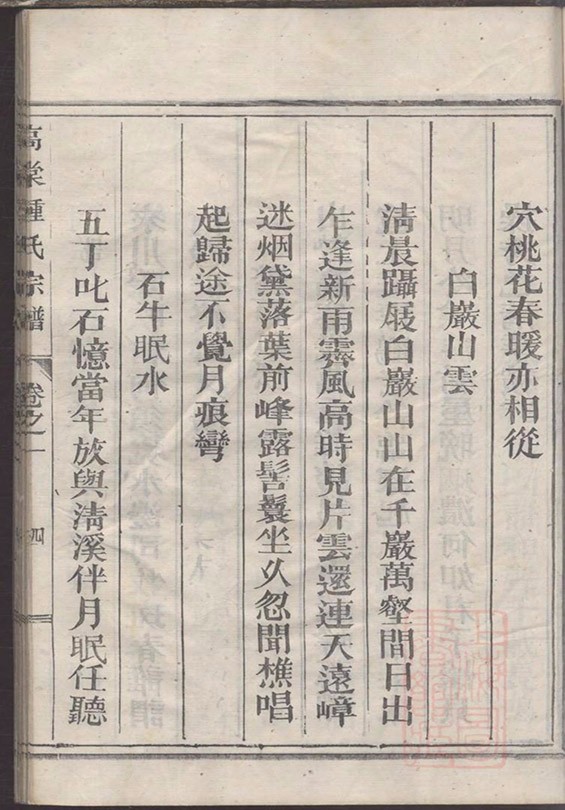 穴桃花春暖亦相從
白巖山雲
淸晨躡屐白巖山山在千巖萬壑間日出
乍逢新雨霽風高時見片雲還連天遠嶂
迷烟黛落葉前峰露髻鬟坐久忽聞樵唱
起歸途不覺月痕彎
石牛眠水
五丁叱石憶當年放與淸溪伴月眠任聽
高棠鍾氏宗譜
卷之一
四